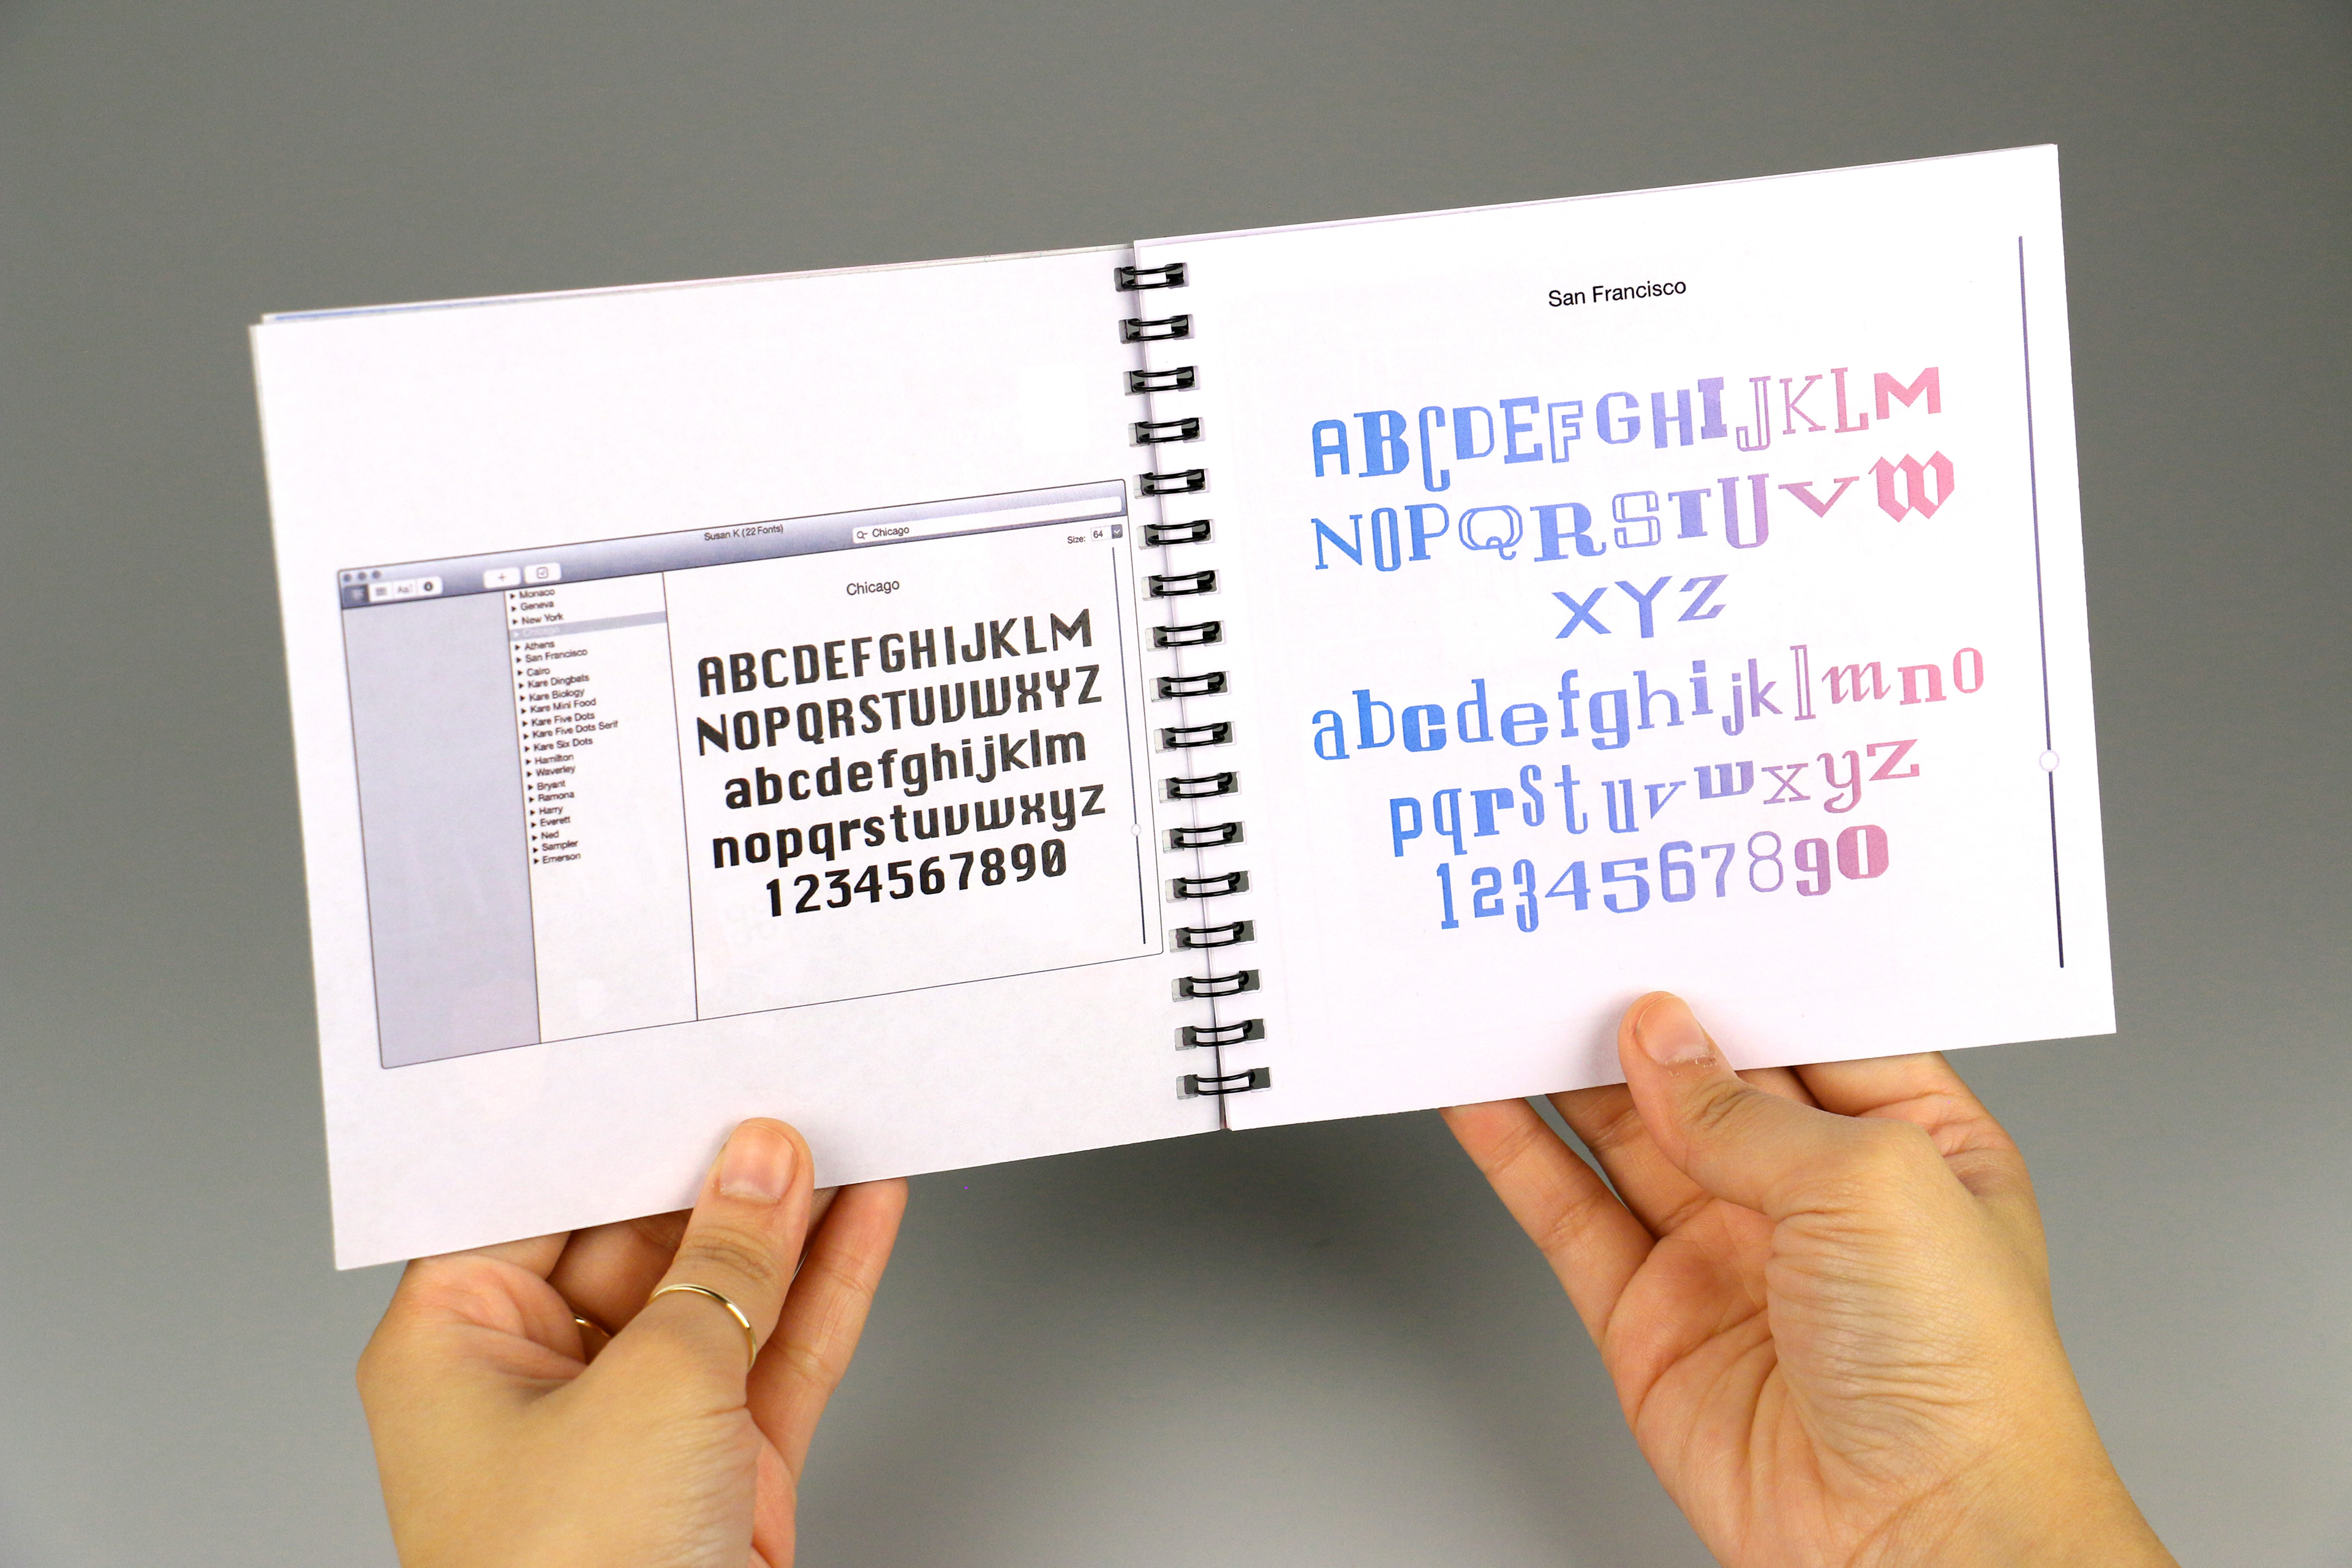 Susan K (22 Fonts)
Chicago
Size: 64
Aa
Monaco
Geneva
New York
Chicago
Athens
San Francisco
Cairo
Kare Dingbats
Kare Biology
Kare Mini Food
Kare Five Dots
Kare Five Dots Serif
Kare Six Dots
Hamilton
Waverley
Bryant
Ramona
Harry
Everett
Ned
Sampler
Emerson
Chicago
ABCDEFGHIJKLM
NOPQRSTUVWXYZ
abcdefghijklm
nopqrstuvwxyz
1234567890
San Francisco
ABCDEFGHIJKLM
NOPQRSTUVW
XYZ
abcdefghijklmno
pqrstuvwxyz
1234567890